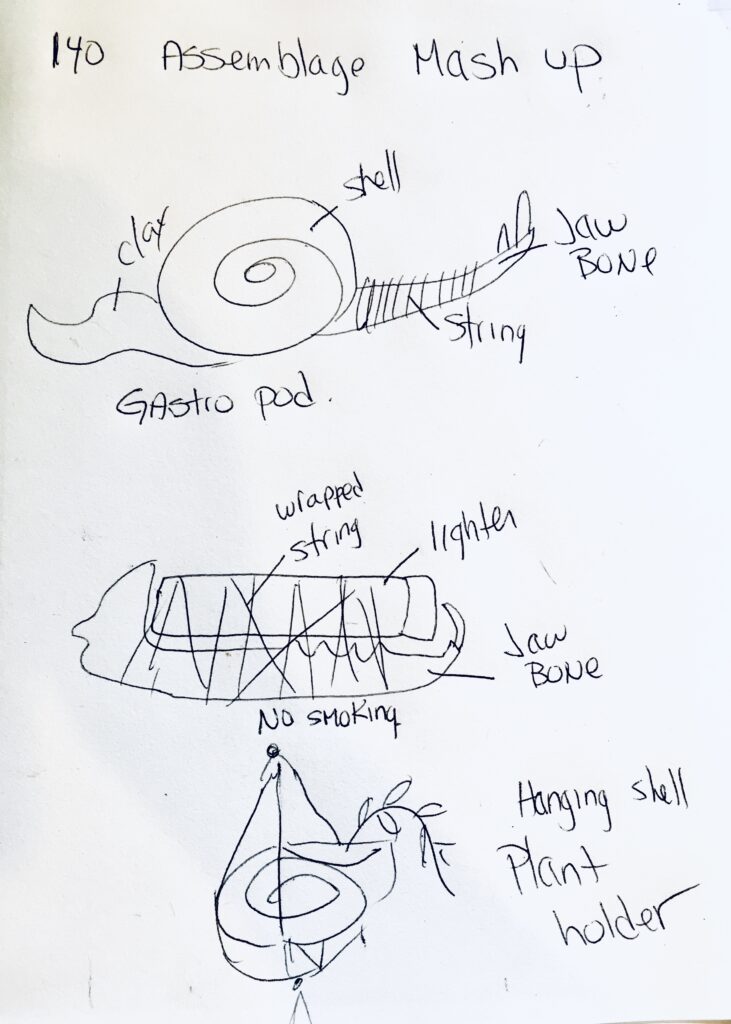 140 Assemblage Mash up
shell
clay
Jaw
BONe
string
GAstro pod.
wrapped
string
lighter
Jaw
BONe
No smoking
Hanging shell
Plant
holder